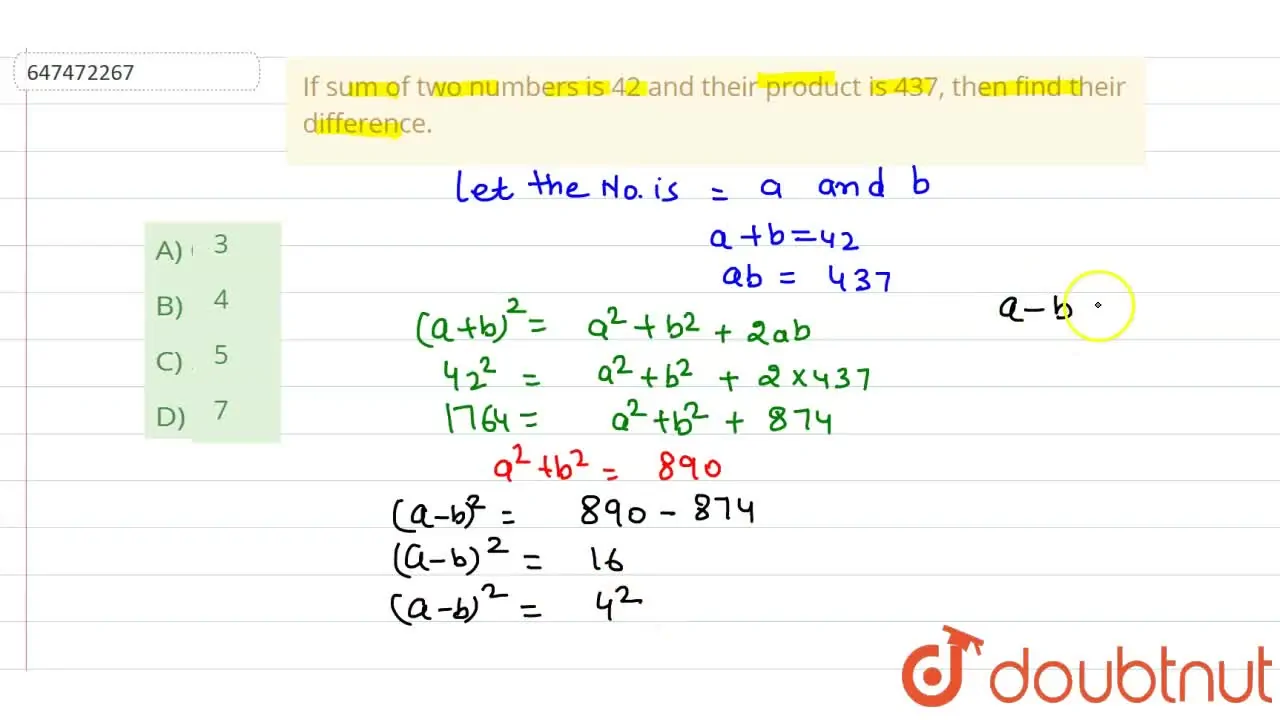 647472267
If sum of two numbers is 42 and their product is 437, then find their
difference.
Let the No. is = a and b
a + b = 42
ab = 437
A) 3
B) 4
C) 5
D) 7
(a+b)² = a² + b² + 2ab
42² = a² + b² + 2 × 437
1764 = a² + b² + 874
a² + b² = 890
(a-b)² = 890 - 874
(a-b)² = 16
(a-b)² = 4²
a - b
doubtnut